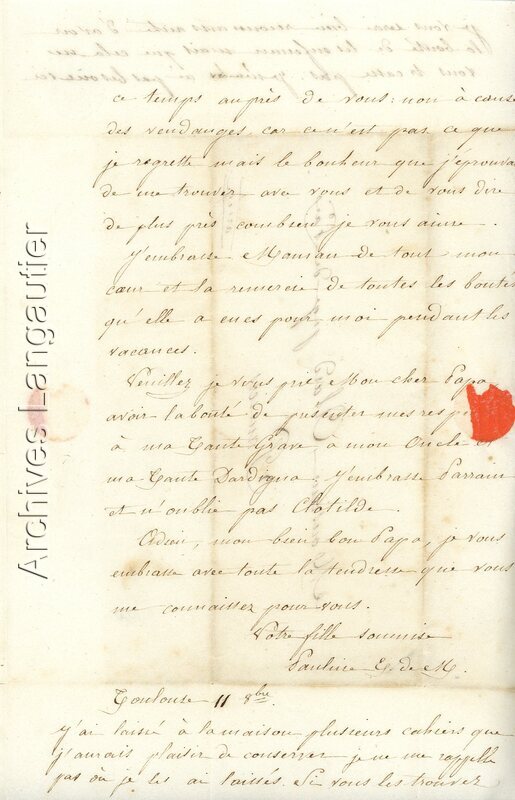 ce temps auprès de vous: non à cause
des vendanges, car ce n'est pas ce que
je regrette mais le bonheur que j'éprouva
de me trouver avec vous et de vous dire
de plus près combien je vous aime.
J'embrasse Maman de tout mon
cœur et la remercie de toutes les bontés
qu'elle a eues pour moi pendant les
vacances.
Veuillez je vous prie Mon cher Papa
avoir la bonté de présenter mes resp
à ma Tante Grave à mon Oncle et
ma Tante Dardigna J'embrasse Parrain
et n'oublie pas Clotilde.
Adieu, mon bien bon Papa, je vous
embrasse avec toute la tendresse que vous
me connaissez pour vous.
Votre fille soumise
Pauline E. de M.
Toulouse 11 8bre
J'ai laissé à la maison plusieurs cahiers que
j'aurais plaisir de conserver je ne me rappelle
pas où je les ai laissés. Si vous les trouvez
Archives Langautier